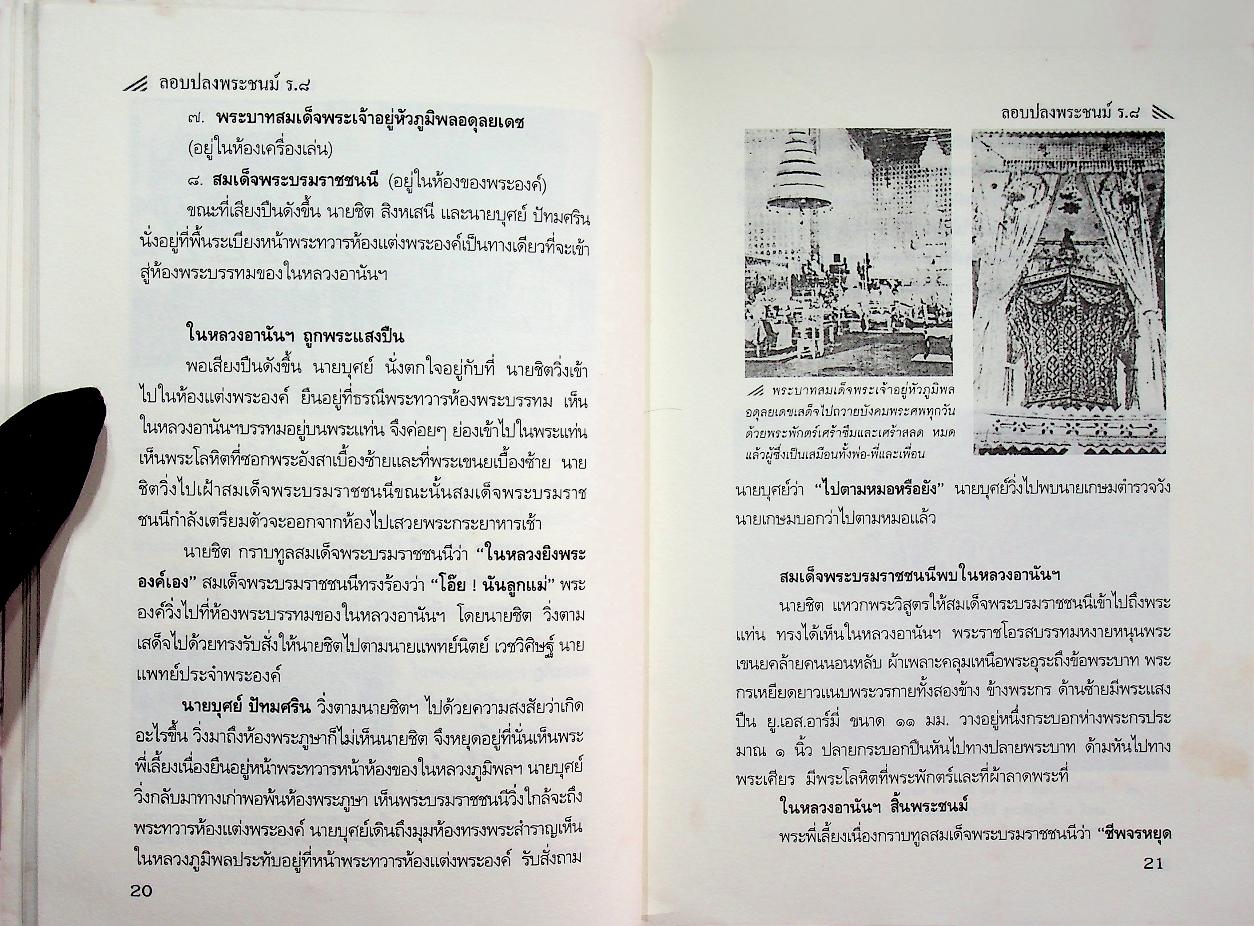 ลอบปลงพระชนม์ ร.๘
๗. พระบาทสมเด็จพระเจ้าอยู่หัวภูมิพลอดุลยเดช
(อยู่ในห้องเครื่องเล่น)
๘. สมเด็จพระบรมราชชนนี (อยู่ในห้องของพระองค์)
ขณะที่เสียงปืนดังขึ้น นายชิต สิงหเสนี และนายบุศย์ ปัทมศริน
นั่งอยู่ที่พื้นระเบียงหน้าพระทวารห้องแต่งพระองค์เป็นทางเดียวที่จะเข้า
สู่ห้องพระบรรทมของในหลวงอานันฯ
ในหลวงอานันฯ ถูกพระแสงปืน
พอเสียงปืนดังขึ้น นายบุศย์ นั่งตกใจอยู่กับที่ นายชิตวิ่งเข้า
ไปในห้องแต่งพระองค์ ยืนอยู่ที่ธรณีพระทวารห้องพระบรรทม เห็น
ในหลวงอานันฯบรรทมอยู่บนพระแท่น จึงค่อยๆ ย่องเข้าไปในพระแท่น
เห็นพระโลหิตที่ซอกพระอังสาเบื้องซ้ายและที่พระเขนยเบื้องซ้าย นาย
ชิตวิ่งไปเฝ้าสมเด็จพระบรมราชชนนีขณะนั้นสมเด็จพระบรมราช
ชนนีกำลังเตรียมตัวจะออกจากห้องไปเสวยพระกระยาหารเช้า
นายชิต กราบทูลสมเด็จพระบรมราชชนนีว่า "ในหลวงยิงพระ
องค์เอง" สมเด็จพระบรมราชชนนีทรงร้องว่า "โอ๊ย ! นันลูกแม่" พระ
องค์วิ่งไปที่ห้องพระบรรทมของในหลวงอานันฯ โดยนายชิต วิ่งตาม
เสด็จไปด้วยทรงรับสั่งให้นายชิตไปตามนายแพทย์นิตย์ เวชวิศิษฐ์ นาย
แพทย์ประจำพระองค์
นายบุศย์ ปัทมศริน วิ่งตามนายชิตฯ ไปด้วยความสงสัยว่าเกิด
อะไรขึ้น วิ่งมาถึงห้องพระภูษาก็ไม่เห็นนายชิต จึงหยุดอยู่ที่นั่นเห็นพระ
พี่เลี้ยงเนื่องยืนอยู่หน้าพระทวารหน้าห้องของในหลวงภูมิพลฯ นายบุศย์
วิ่งกลับมาทางเก่าพอพ้นห้องพระภูษา เห็นพระบรมราชชนนีวิ่งใกล้จะถึง
พระทวารห้องแต่งพระองค์ นายบุศย์เดินถึงมุมห้องทรงพระสำราญเห็น
ในหลวงภูมิพลประทับอยู่ที่หน้าพระทวารห้องแต่งพระองค์ รับสั่งถาม
20
ลอบปลงพระชนม์ ร.๘
พระบาทสมเด็จพระเจ้าอยู่หัวภูมิพล
อดุลยเดชเสด็จไปถวายบังคมพระศพทุกวัน
ด้วยพระพักตร์เศร้าซึมและเศร้าสลด หมด
แล้วผู้ซึ่งเป็นเสมือนทั้งพ่อ-พี่และเพื่อน
นายบุศย์ว่า "ไปตามหมอหรือยัง" นายบุศย์วิ่งไปพบนายเกษมตำรวจวัง
นายเกษมบอกว่าไปตามหมอแล้ว
สมเด็จพระบรมราชชนนีพบในหลวงอานันฯ
นายชิต แหวกพระวิสูตรให้สมเด็จพระบรมราชชนนีเข้าไปถึงพระ
แท่น ทรงได้เห็นในหลวงอานันฯ พระราชโอรสบรรทมหงายหนุนพระ
เขนยคล้ายคนนอนหลับ ผ้าเพลาะคลุมเหนือพระอุระถึงข้อพระบาท พระ
กรเหยียดยาวแนบพระวรกายทั้งสองข้าง ข้างพระกร ด้านซ้ายมีพระแสง
ปืน ยู.เอส.อาร์มี่ ขนาด ๑๑ มม. วางอยู่หนึ่งกระบอกห่างพระกรประ
มาณ ๑ นิ้ว ปลายกระบอกปืนหันไปทางปลายพระบาท ด้ามหันไปทาง
พระเศียร มีพระโลหิตที่พระพักตร์และที่ผ้าลาดพระที่
ในหลวงอานันฯ สิ้นพระชนม์
พระพี่เลี้ยงเนื่องกราบทูลสมเด็จพระบรมราชชนนีว่า "ชีพจรหยุด
21